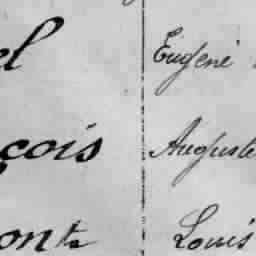 el Eugène
çois Auguste
ont Louis